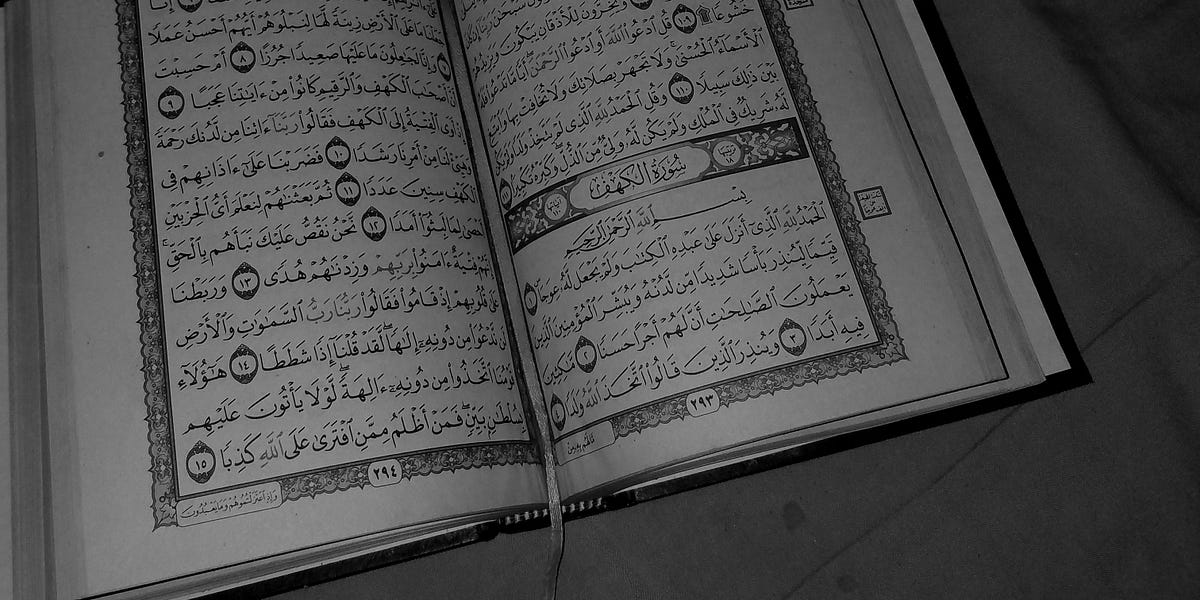 وَيَخِرُّونَ لِلْأَذْقَانِ يَبْكُونَ وَيَزِيدُهُمْ
خُشُوعًا ۩ ١٠٩ قُلِ ٱدْعُوا۟ ٱللَّهَ أَوِ ٱدْعُوا۟ ٱلرَّحْمَٰنَ أَيًّا مَّا تَدْعُوا۟ فَلَهُ
ٱلْأَسْمَآءُ ٱلْحُسْنَىٰ وَلَا تَجْهَرْ بِصَلَاتِكَ وَلَا تُخَافِتْ بِهَا وَٱبْتَغِ
بَيْنَ ذَٰلِكَ سَبِيلًا ١١٠ وَقُلِ ٱلْحَمْدُ لِلَّهِ ٱلَّذِى لَمْ يَتَّخِذْ وَلَدًا وَلَمْ يَكُن
لَّهُۥ شَرِيكٌ فِى ٱلْمُلْكِ وَلَمْ يَكُن لَّهُۥ وَلِىٌّ مِّنَ ٱلذُّلِّ وَكَبِّرْهُ تَكْبِيرًا ١١١
سُورَةُ الكَهْفِ
بِسْمِ ٱللَّهِ ٱلرَّحْمَٰنِ ٱلرَّحِيمِ
ٱلْحَمْدُ لِلَّهِ ٱلَّذِىٓ أَنزَلَ عَلَىٰ عَبْدِهِ ٱلْكِتَٰبَ وَلَمْ يَجْعَل لَّهُۥ عِوَجَا ١
قَيِّمًا لِّيُنذِرَ بَأْسًا شَدِيدًا مِّن لَّدُنْهُ وَيُبَشِّرَ ٱلْمُؤْمِنِينَ ٱلَّذِينَ
يَعْمَلُونَ ٱلصَّٰلِحَٰتِ أَنَّ لَهُمْ أَجْرًا حَسَنًا ٢ مَّٰكِثِينَ
فِيهِ أَبَدًا ٣ وَيُنذِرَ ٱلَّذِينَ قَالُوا۟ ٱتَّخَذَ ٱللَّهُ وَلَدًا ٤
٢٩٣
عَلَى ٱلْأَرْضِ زِينَةً لَّهَا لِنَبْلُوَهُمْ أَيُّهُمْ أَحْسَنُ عَمَلًا
٧ وَإِنَّا لَجَٰعِلُونَ مَا عَلَيْهَا صَعِيدًا جُرُزًا ٨ أَمْ حَسِبْتَ
أَنَّ أَصْحَٰبَ ٱلْكَهْفِ وَٱلرَّقِيمِ كَانُوا۟ مِنْ ءَايَٰتِنَا عَجَبًا ٩
إِذْ أَوَى ٱلْفِتْيَةُ إِلَى ٱلْكَهْفِ فَقَالُوا۟ رَبَّنَآ ءَاتِنَا مِن لَّدُنكَ رَحْمَةً
وَهَيِّئْ لَنَا مِنْ أَمْرِنَا رَشَدًا ١٠ فَضَرَبْنَا عَلَىٰٓ ءَاذَانِهِمْ فِى
ٱلْكَهْفِ سِنِينَ عَدَدًا ١١ ثُمَّ بَعَثْنَٰهُمْ لِنَعْلَمَ أَىُّ ٱلْحِزْبَيْنِ
أَحْصَىٰ لِمَا لَبِثُوٓا۟ أَمَدًا ١٢ نَّحْنُ نَقُصُّ عَلَيْكَ نَبَأَهُم بِٱلْحَقِّ
إِنَّهُمْ فِتْيَةٌ ءَامَنُوا۟ بِرَبِّهِمْ وَزِدْنَٰهُمْ هُدًى ١٣ وَرَبَطْنَا
عَلَىٰ قُلُوبِهِمْ إِذْ قَامُوا۟ فَقَالُوا۟ رَبُّنَا رَبُّ ٱلسَّمَٰوَٰتِ وَٱلْأَرْضِ
لَن نَّدْعُوَا۟ مِن دُونِهِۦٓ إِلَٰهًا لَّقَدْ قُلْنَآ إِذًا شَطَطًا ١٤ هَٰٓؤُلَآءِ
قَوْمُنَا ٱتَّخَذُوا۟ مِن دُونِهِۦٓ ءَالِهَةً لَّوْلَا يَأْتُونَ عَلَيْهِم
بِسُلْطَٰنٍۭ بَيِّنٍ فَمَنْ أَظْلَمُ مِمَّنِ ٱفْتَرَىٰ عَلَى ٱللَّهِ كَذِبًا ١٥
٢٩٤
وَإِذِ ٱعْتَزَلْتُمُوهُمْ وَمَا يَعْبُدُونَ